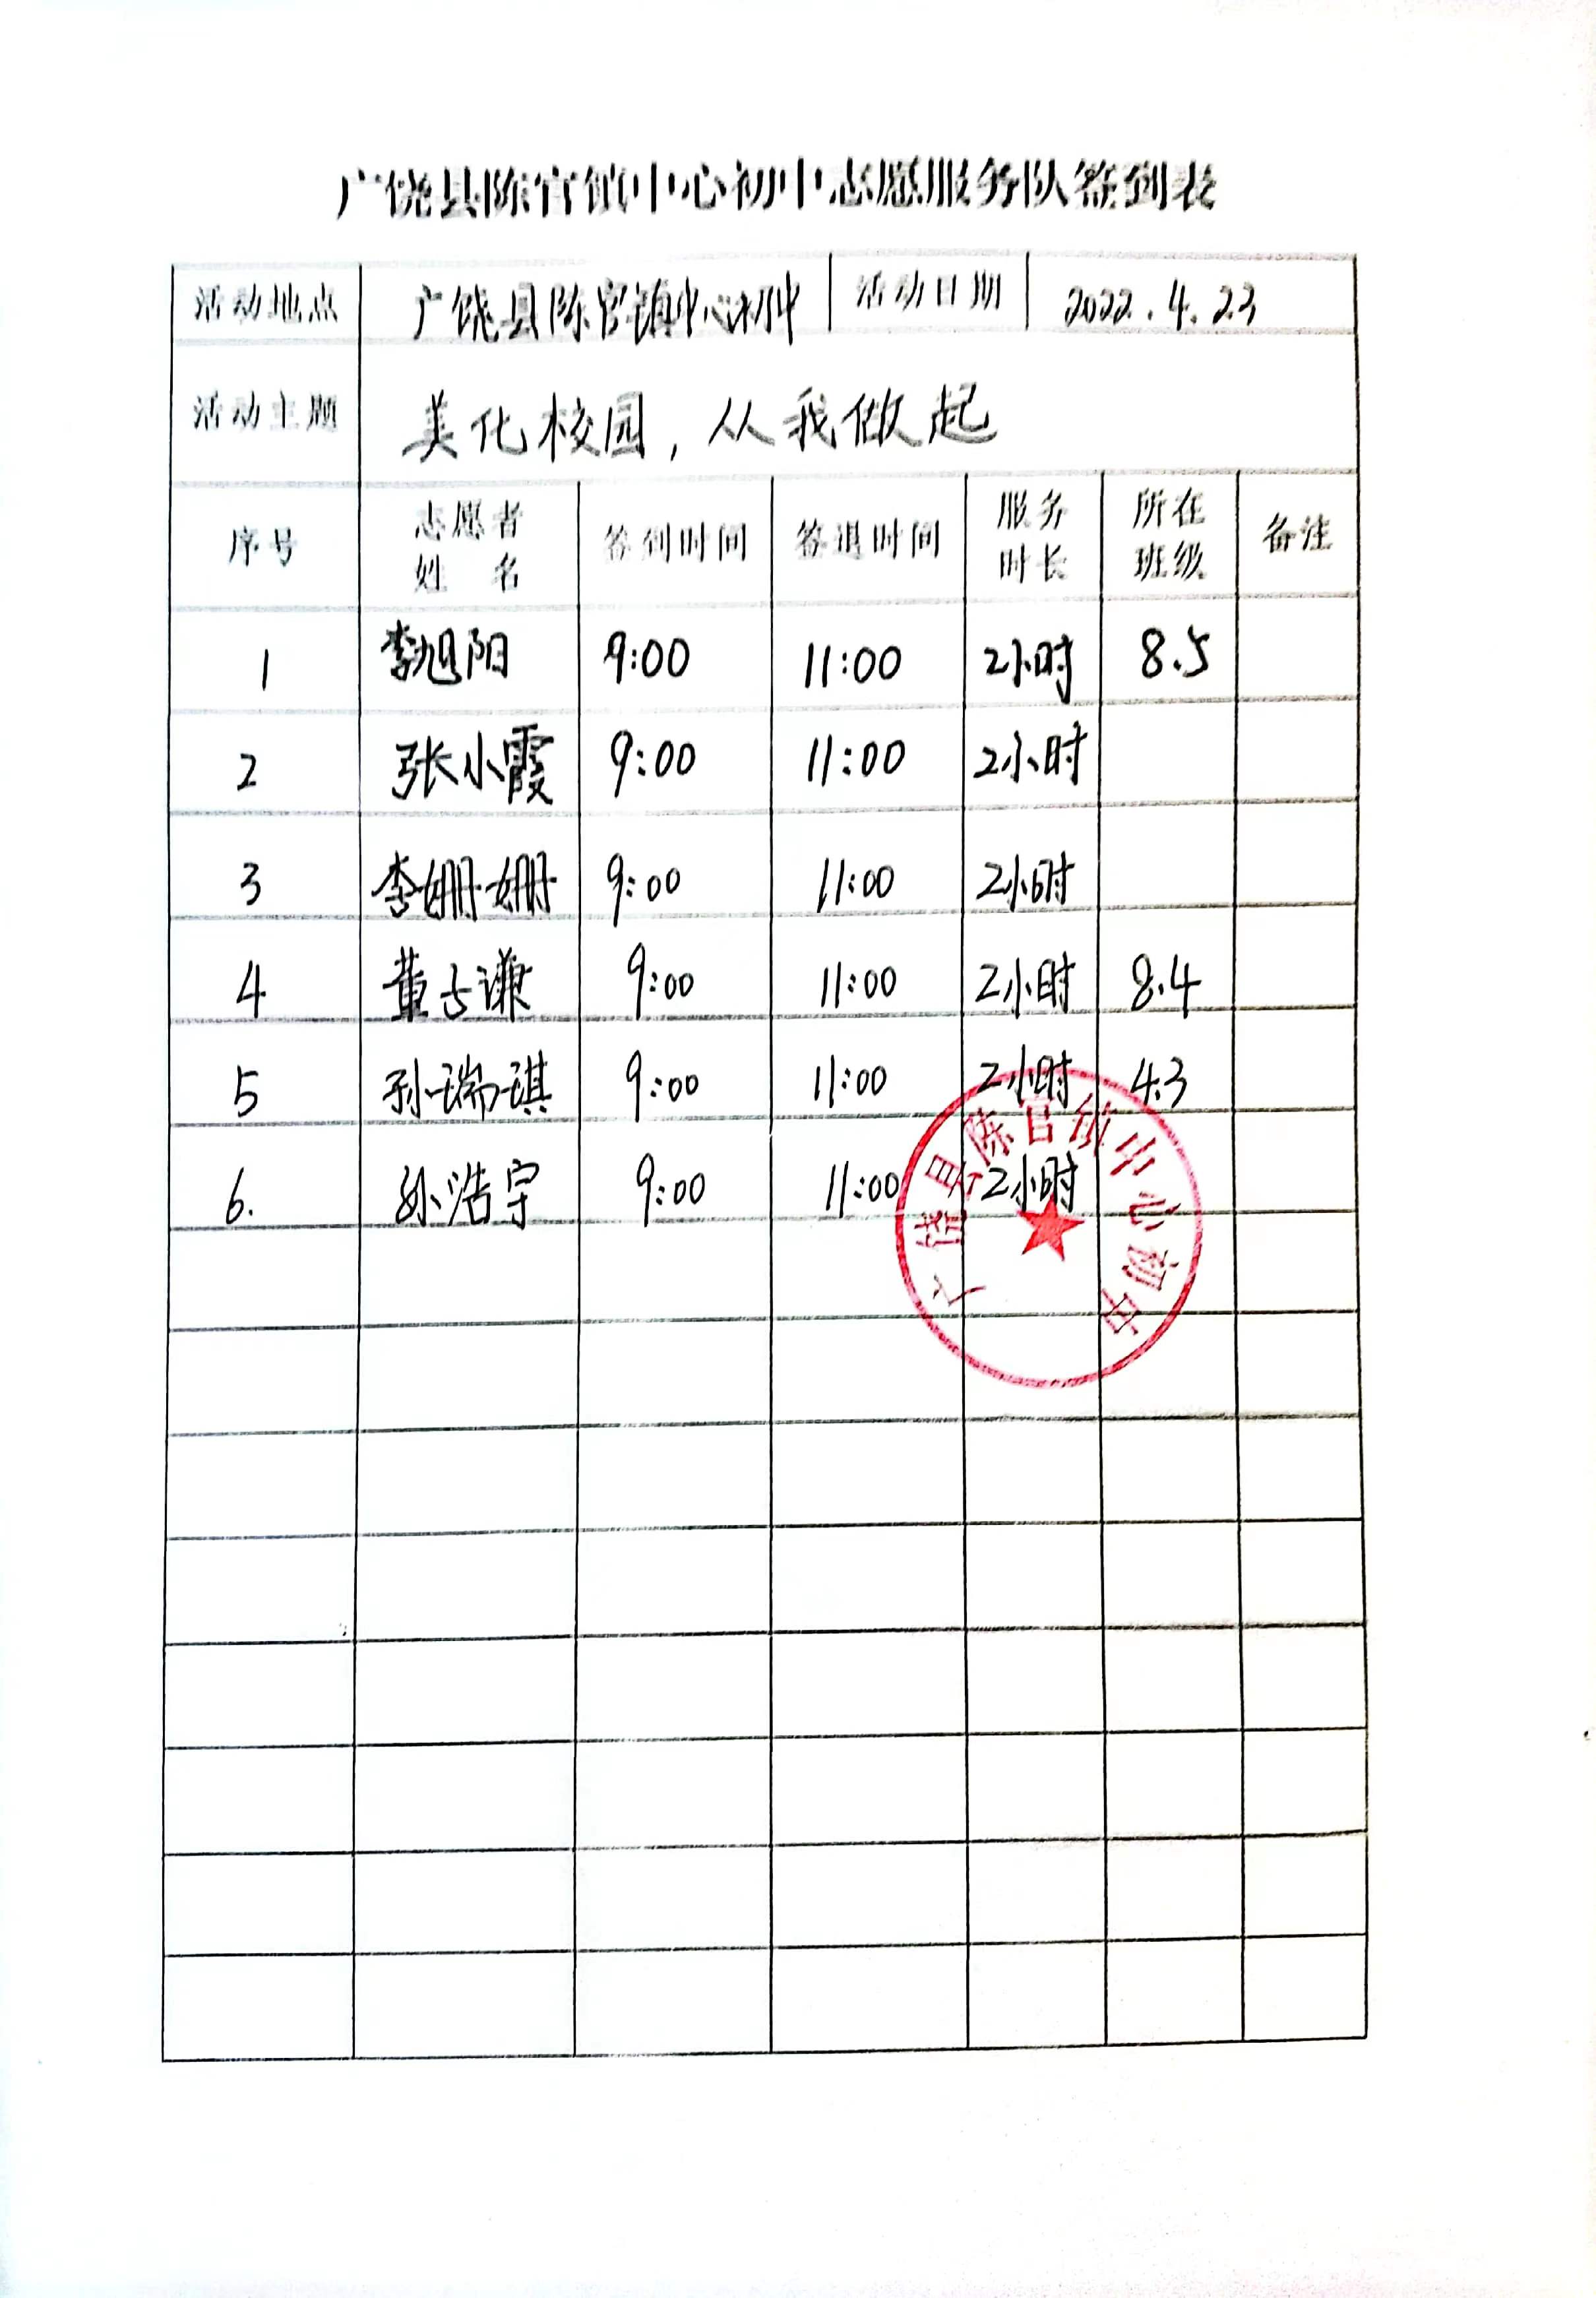 广饶县陈官镇中心初中志愿服务队签到表
活动地点 广饶县陈官镇中心初中 活动日期 2022.4.23
活动主题 美化校园,从我做起
序号 志愿者姓名 签到时间 签退时间 服务时长 所在班级 备注
1 李旭阳 9:00 11:00 2小时 8.5
2 张小霞 9:00 11:00 2小时
3 李姗姗 9:00 11:00 2小时
4 董占谦 9:00 11:00 2小时 8.4
5 孙瑞琪 9:00 11:00 2小时 4.3
6. 孙浩宇 9:00 11:00 2小时
广饶县陈官镇中心初中